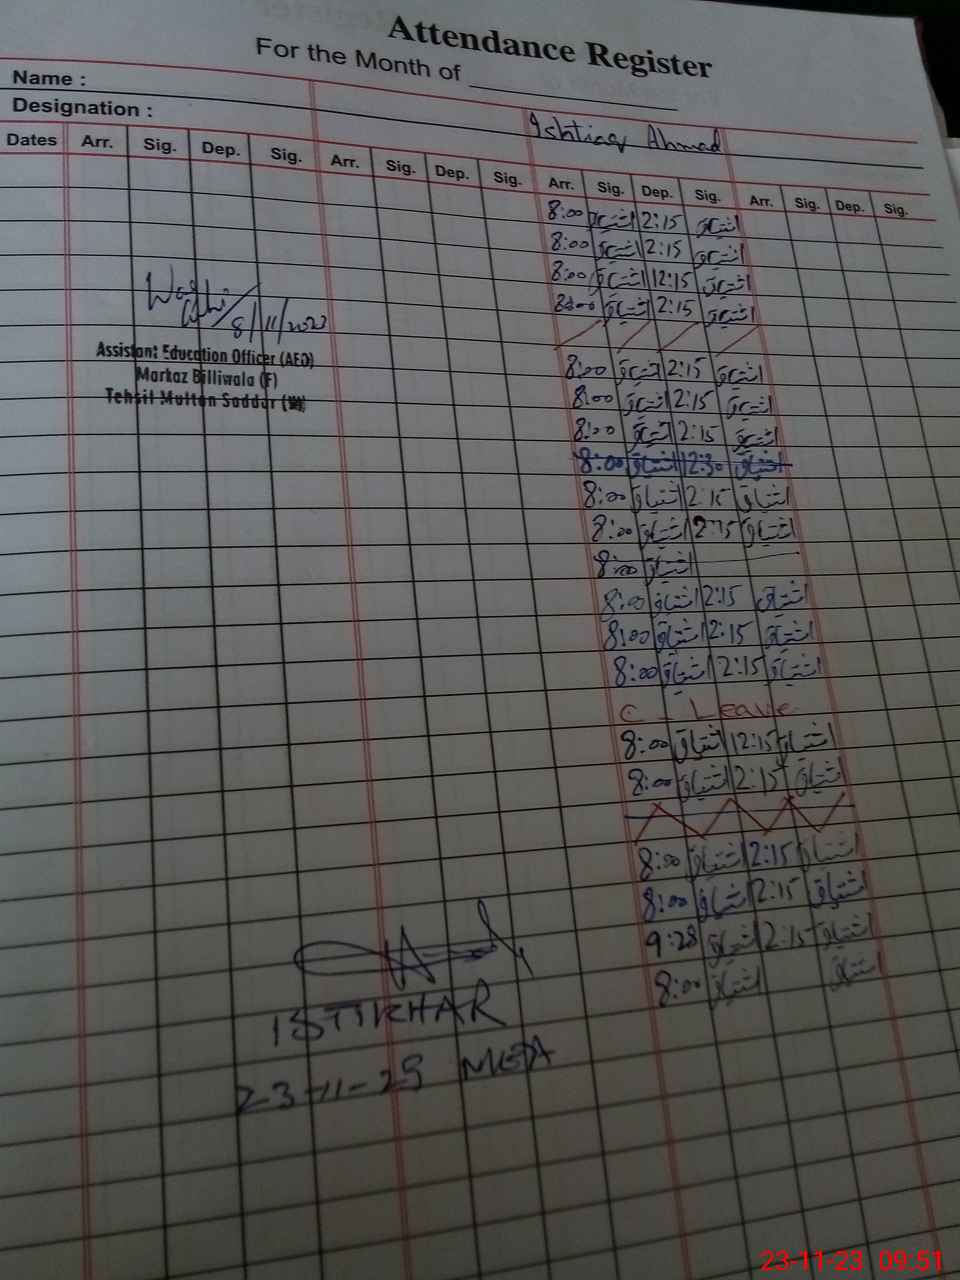 Attendance Register
For the Month of
Name :
Designation :
Ishtiaq Ahmad
Dates Arr. Sig. Dep. Sig. Arr. Sig. Dep. Sig. Arr. Sig. Dep. Sig. Arr. Sig. Dep. Sig.
8:00 اشتیاق 2:15 اشتیاق
8:00 اشتیاق 2:15 اشتیاق
8:00 اشتیاق 12:15 اشتیاق
8:00 اشتیاق 2:15 اشتیاق
8/11/2023
Assistant Education Officer (AEO)
Markaz Billiwala (F)
Tehsil Multan Saddar
8:00 اشتیاق 2:15 اشتیاق
8:00 اشتیاق 2:15 اشتیاق
8:00 اشتیاق 2:15 اشتیاق
8:00 اشتیاق 12:30 اشتیاق
8:00 اشتیاق 2:15 اشتیاق
8:00 اشتیاق 2:15 اشتیاق
8:00 اشتیاق
8:00 اشتیاق 2:15 اشتیاق
8:00 اشتیاق 2:15 اشتیاق
8:00 اشتیاق 2:15 اشتیاق
C - Leave
8:00 اشتیاق 12:15 اشتیاق
8:00 اشتیاق 2:15 اشتیاق
8:00 اشتیاق 2:15 اشتیاق
8:00 اشتیاق 2:15 اشتیاق
9:28 اشتیاق 2:15 اشتیاق
8:00 اشتیاق اشتیاق
ISTIKHAR
23-11-23 MEA
23-11-23 09:51